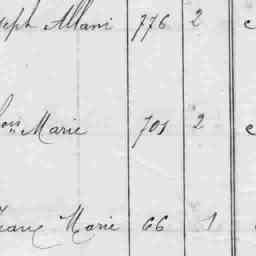 seph Allani 776 2
Marie 701 2
Jean Marie 66 1